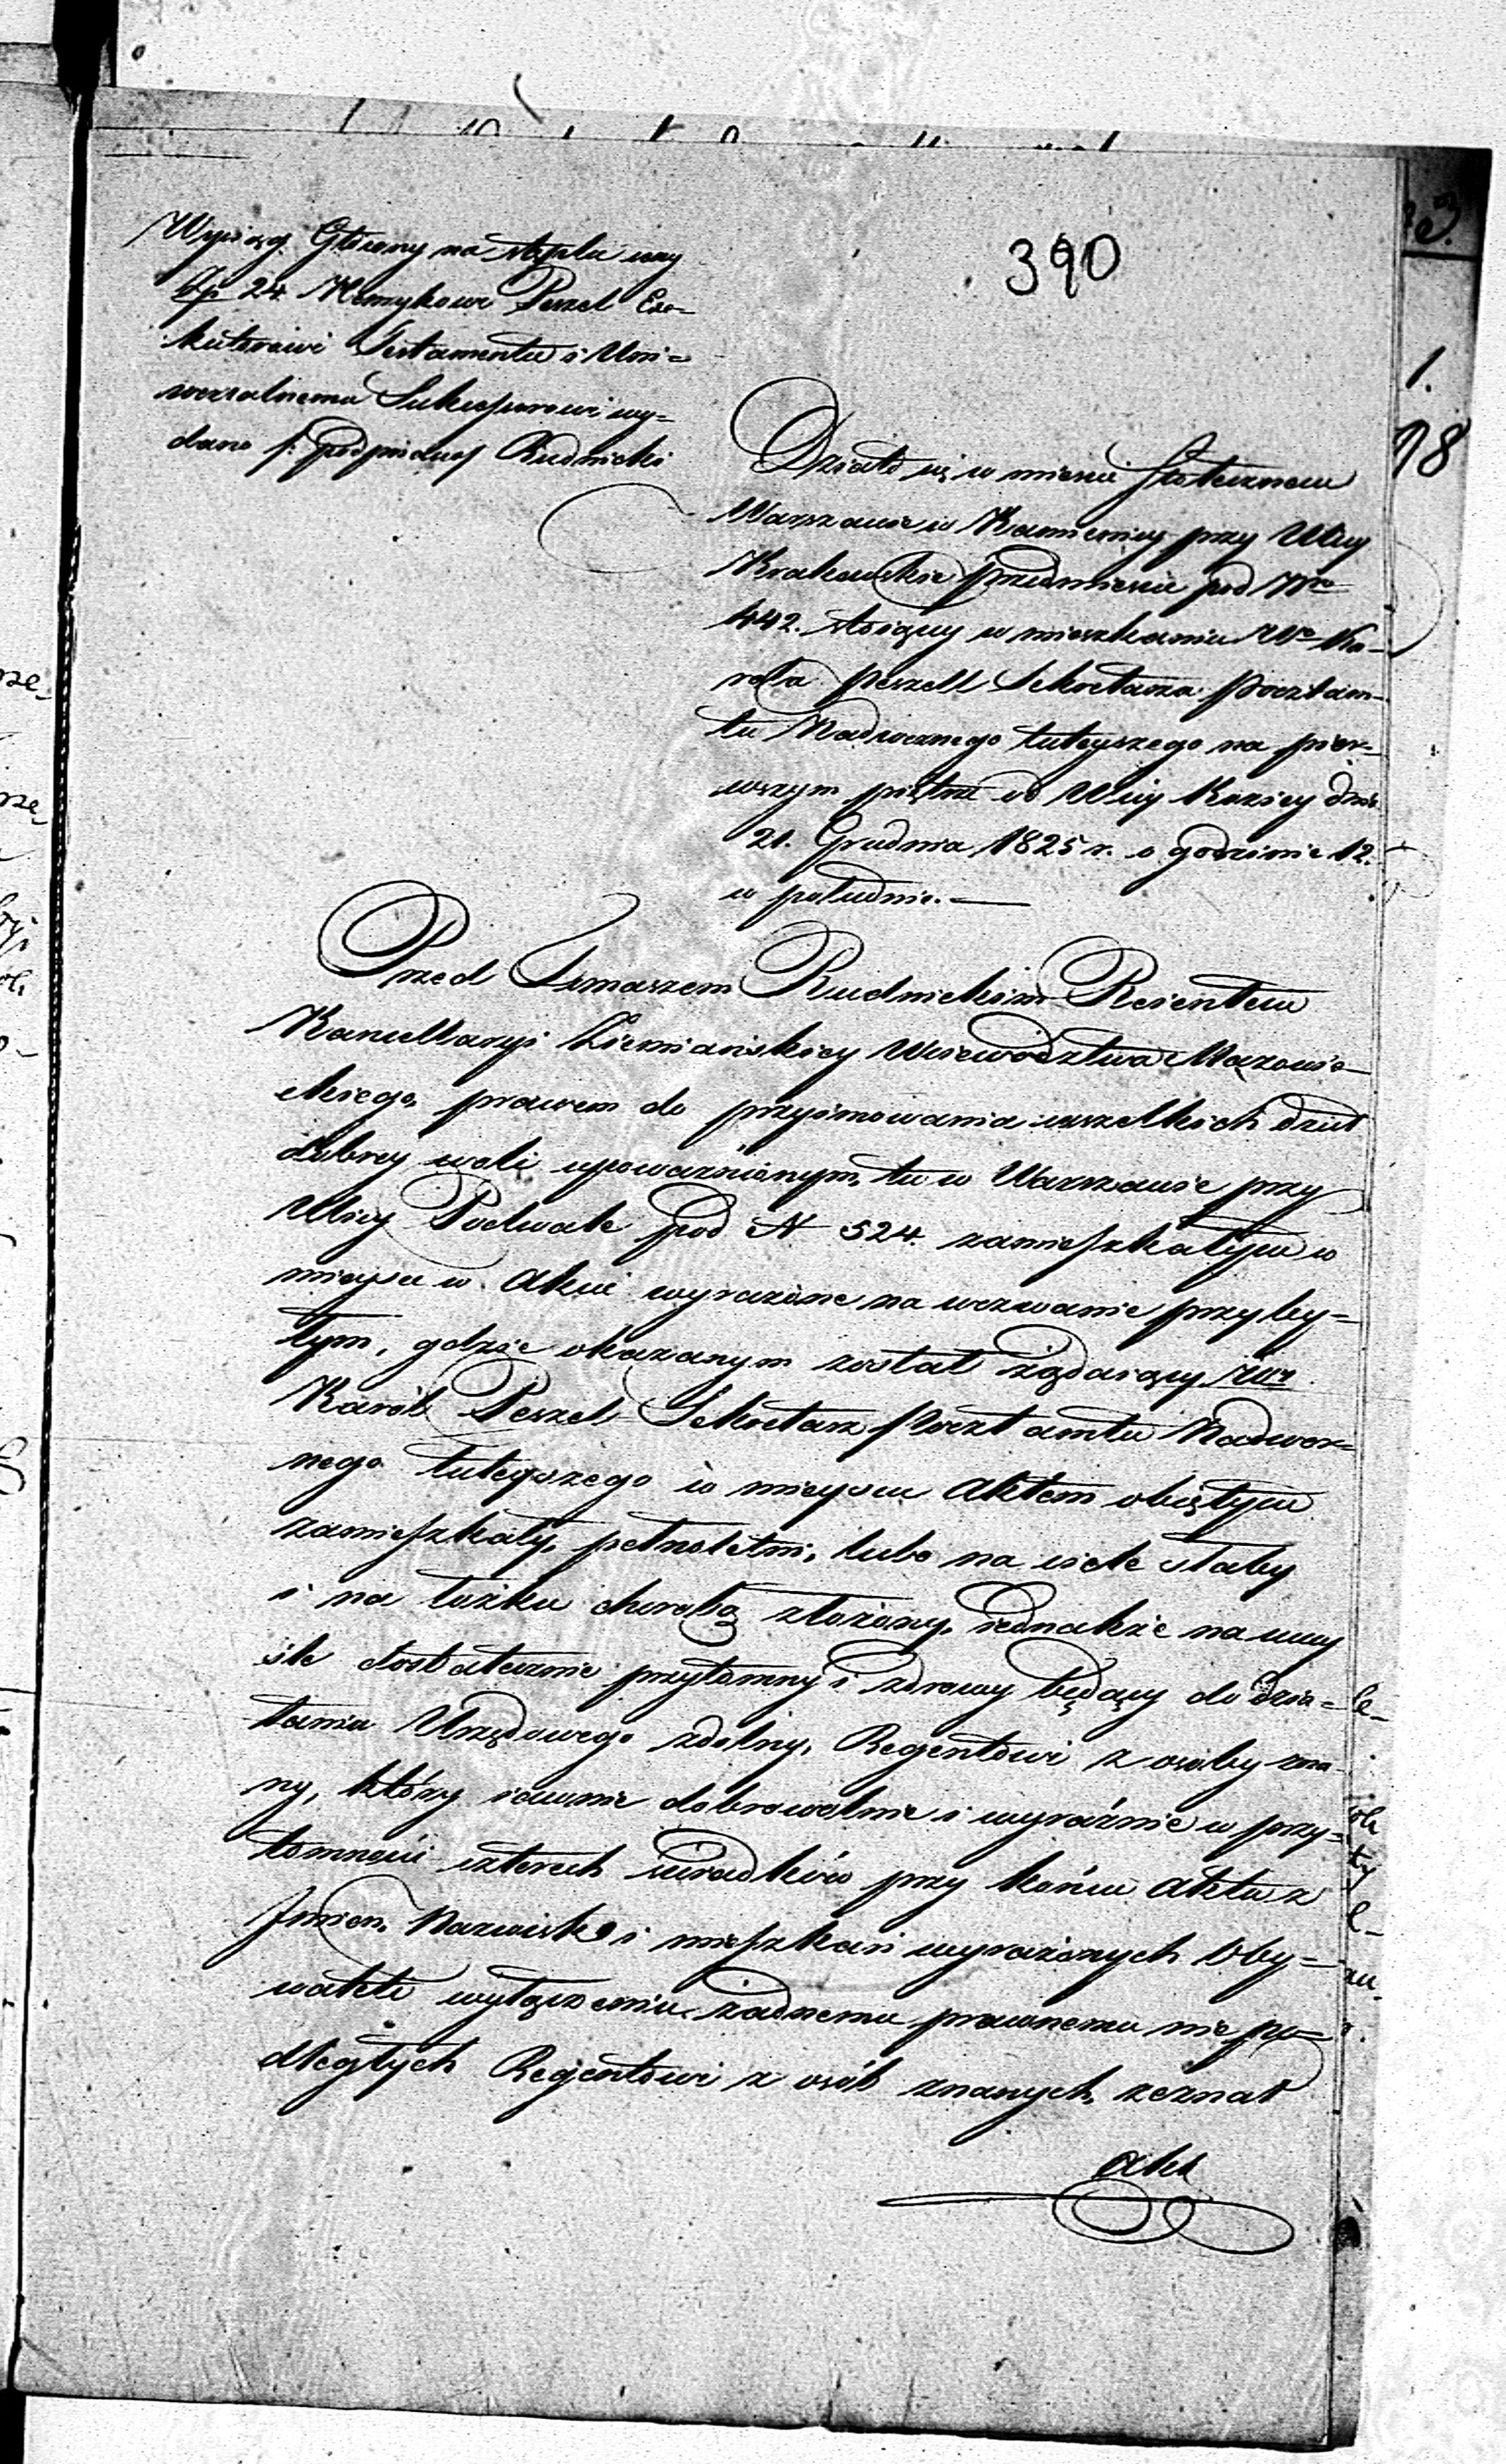 Wyciąg Główny na stęplu ceny
Złp 24. Henrykowi Peszel Exe=
kutorowi Testamentu i Uni=
wersalnemu Sukcessorowi wy=
dano /: podpisano/ Rudnicki
390
Działo się w mieście Stołecznem
Warszawie w Kamienicy przy Ulicy
Krakowskie przedmieście pod Nro
442. stoiącey w mieszkaniu Ur Ka=
rola Peszell Sekretarza Pocztam=
tu Nadwornego tuteyszego na pier=
wszym piętrze od Ulicy Koziey dnia
21. Grudnia 1825 r. o godzinie 12.
w południe. —
Przed Tomaszem Rudnickim Reientem
Kancellaryi Ziemiańskiey Woiewództwa Mazowie=
ckiego, prawem do przyimowania wszelkich dzieł
dobrey woli upoważnionym, tu w Warszawie przy
Ulicy Podwale pod N 524. zamieszkałym w
mieysce w Akcie wyrażone na wezwanie przyby=
łym, gdzie okazanym został żądaiący Ur
Karól Peszel Sekretarz Pocztamtu Nadwor=
nego tuteyszego w mieyscu Aktem obiętym
zamieszkały, pełnoletni, lubo na ciele słaby
i na łożku chorobą złożony, iednakże na umy
śle dostatecznie przytomny i zdrowy będący do dzia=
łania Urzędowego zdolny, Regentowi z osoby zna
ny, który iawnie dobrowolnie i wyraźnie w przy=
tomności czterech świadków przy końcu Aktu z
Imion, Nazwisk i mieszkań wyrażonych Oby=
wateli wyłączeniu żadnemu prawnemu nie po=
dległych Regentowi z osób znanych, zeznał
Akt